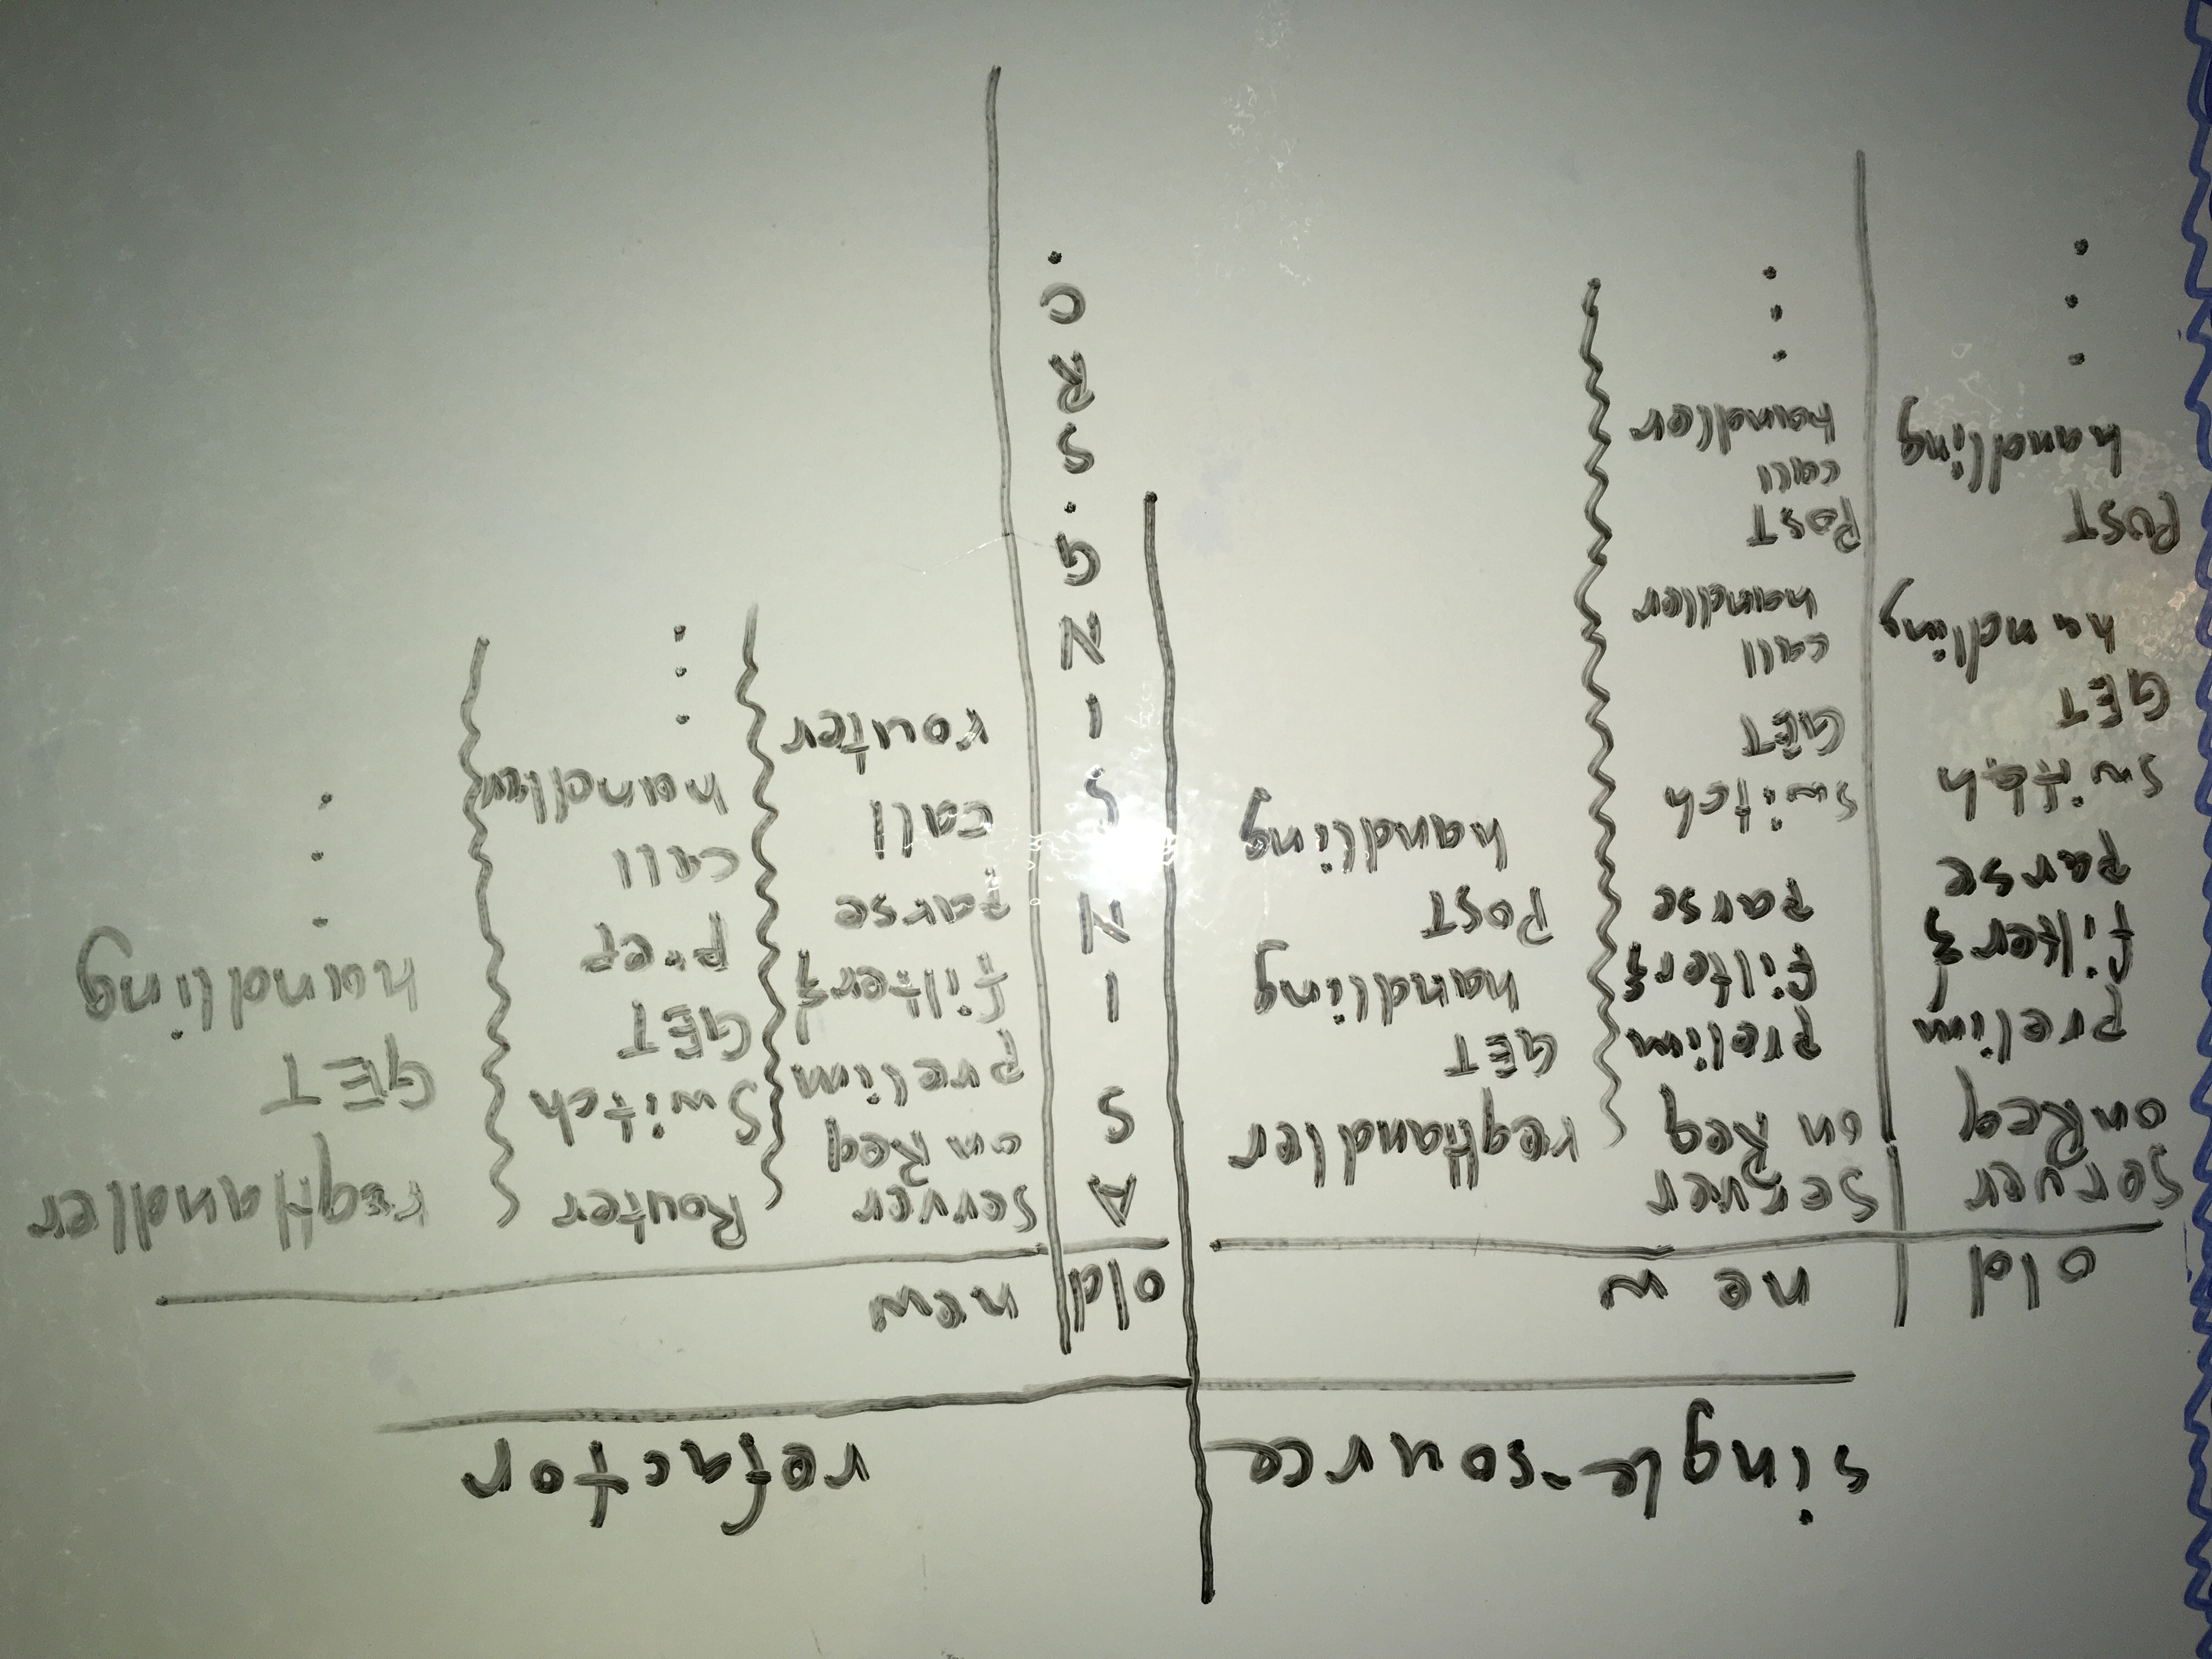 single-source
old
new
server
onReq
prelim
filter &
parse
switch
GET
handling
POST
handling
Server
onReq
prelim
filter &
parse
switch
GET
call
handler
POST
call
handler
reqHandler
GET
handling
POST
handling
refactor
old
new
A
S
I
N
S
I
N
G
.
S
R
C
.
Server
onReq
prelim
filter &
parse
call
router
Router
Switch
GET
prep
call
handler
reqHandler
GET
handling